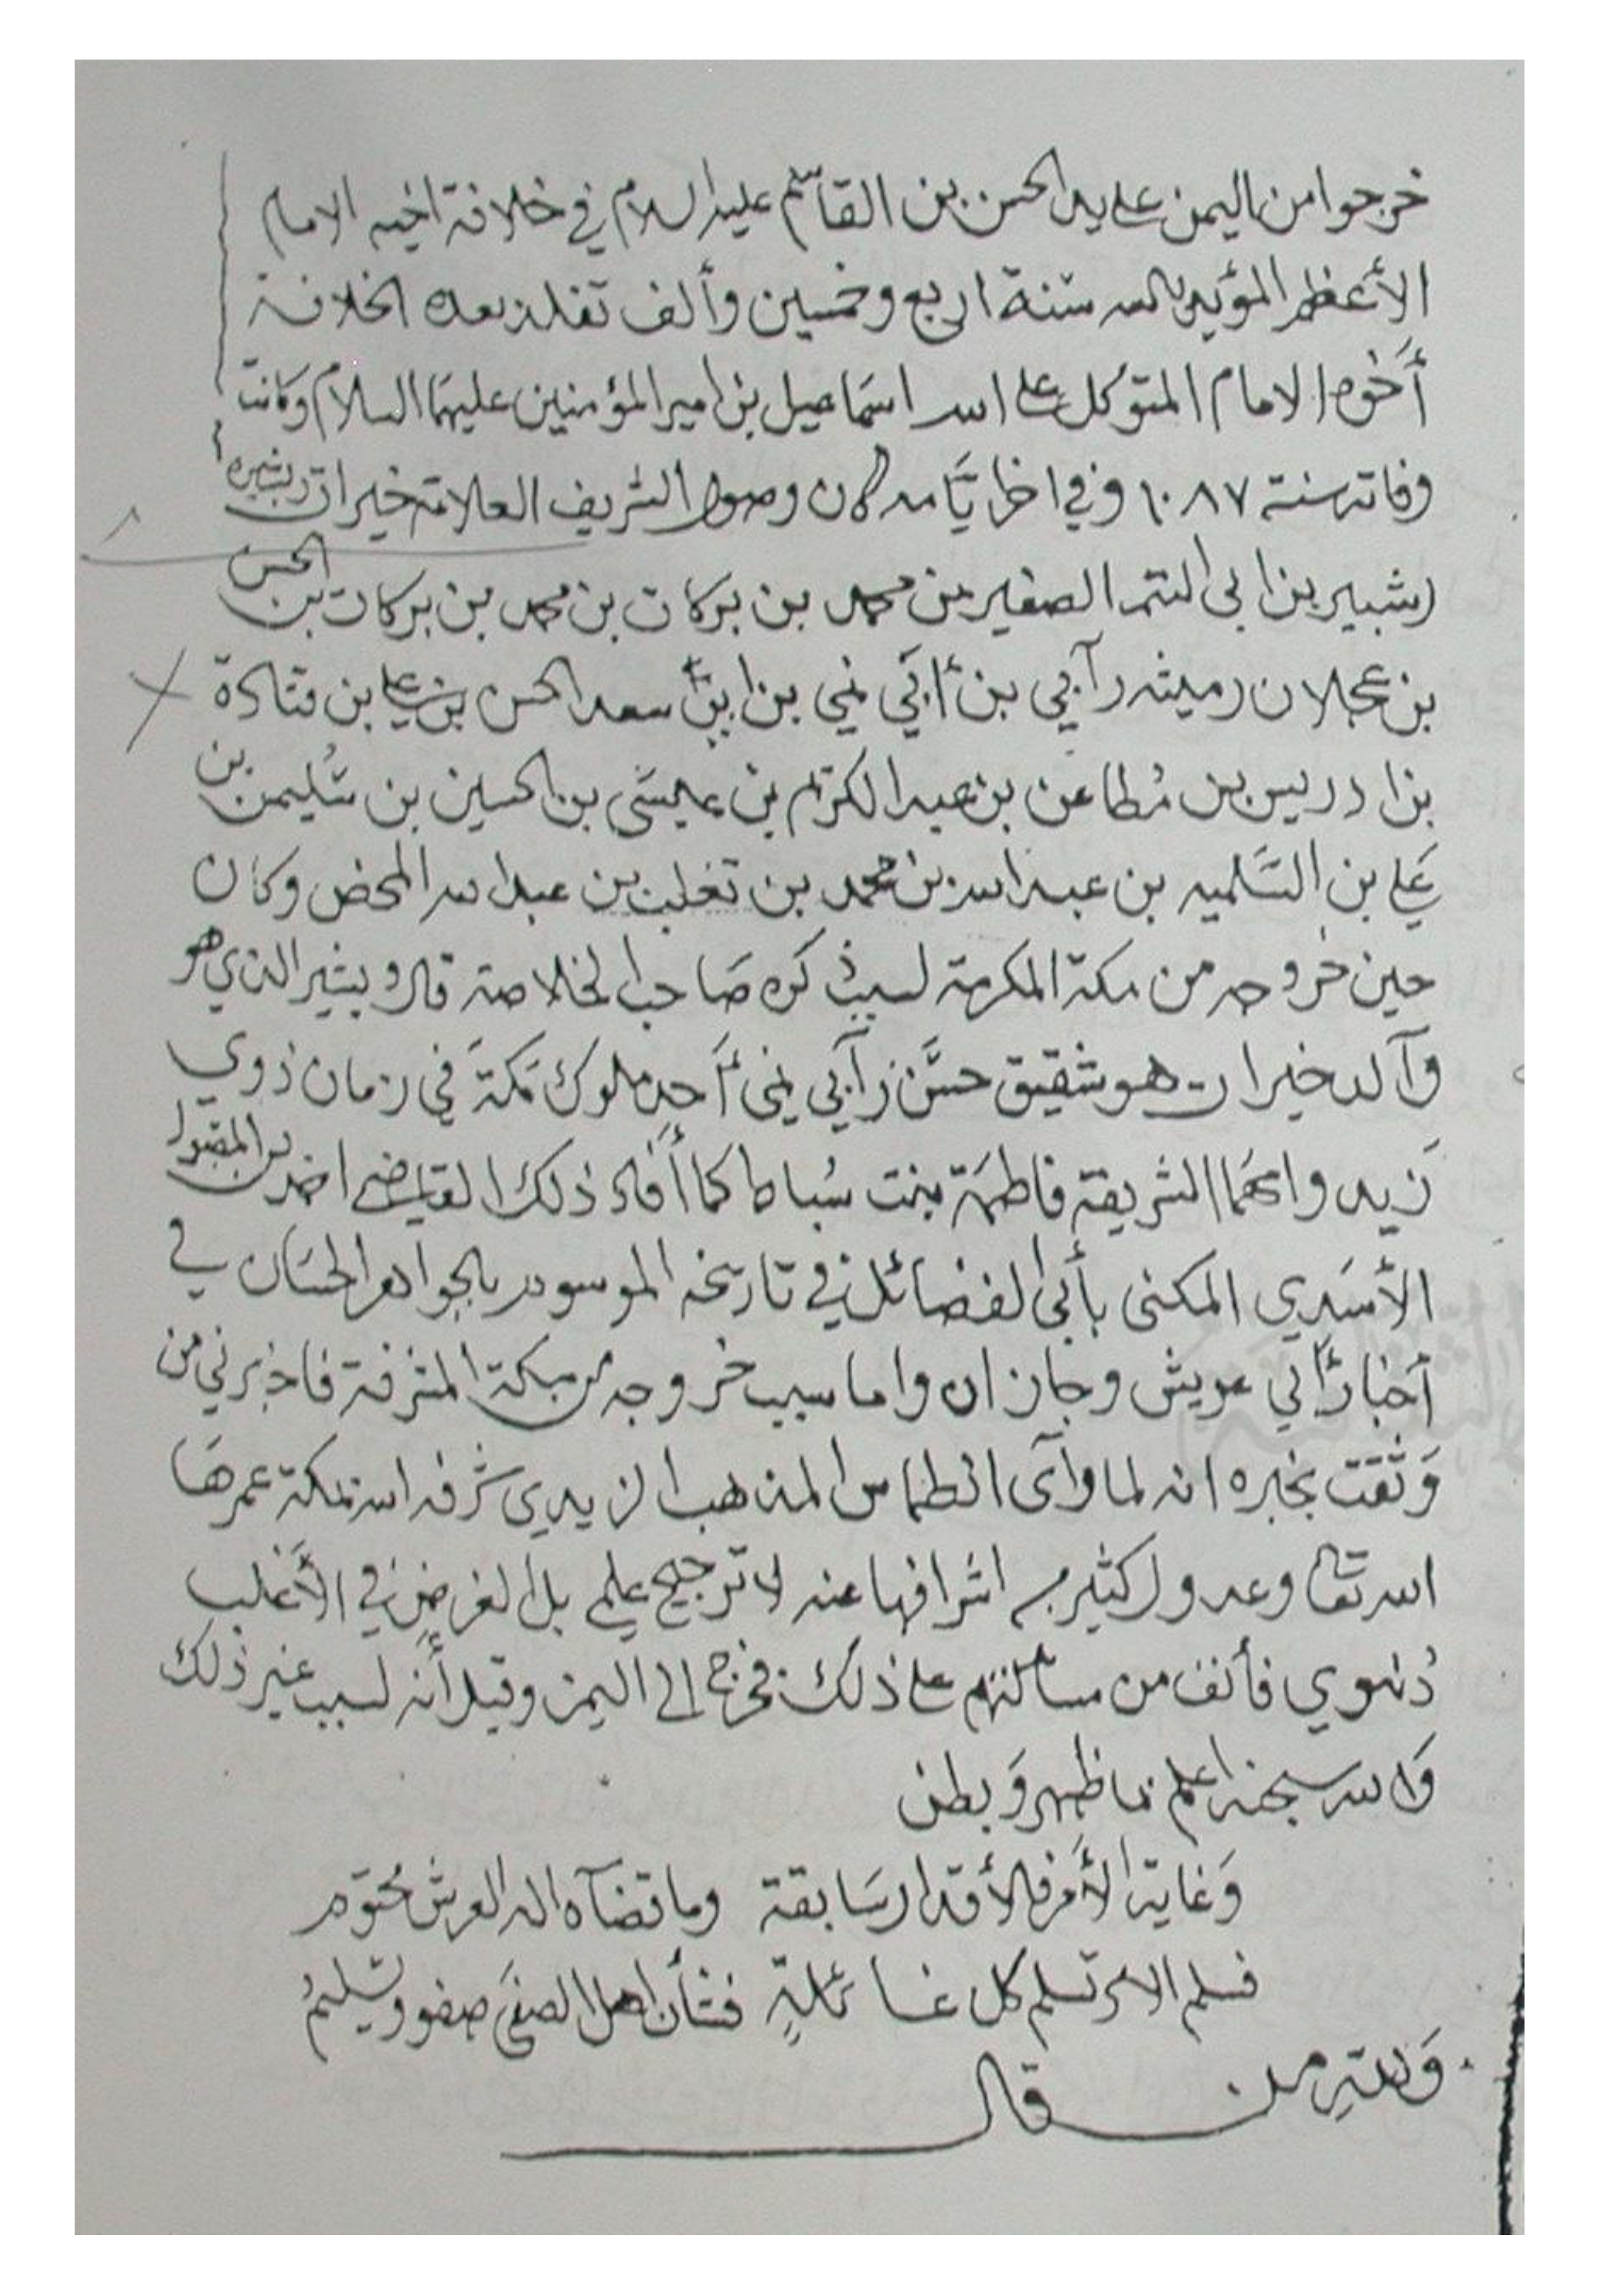 خرجوا من اليمن على يد الحسن بن القاسم عليه السلام في خلافة اخيه الامام
الأعظم المؤيد بالله سنة اربع وخمسين وألف تقلد بعده الخلافة
أخوه الامام المتوكل على الله اسماعيل بن امير المؤمنين عليهما السلام وكانت
وفاته سنة ١٠٨٧ وفي اخر ايامه كان وصول الشريف العلامة خيرات بن بشير
بن ابي نمي الصغير بن محمد بن بركات بن محمد بن بركات بن الحسن
بن عجلان رميثه بن أبي نمي بن سعد الحسن بن علي بن قتادة
بن ادريس بن مُطاعن بن عبد الكريم بن عيسى بن الحسين بن سُليمن بن
علي بن عبد الله بن محمد بن تغلب بن عبد الله المحض وكان
حين خروجه من مكة المكرمة لسبب ذكره صاحب الخلاصة قال وبشير الذي هو
وآلد خيرات هو شقيق حسن بن أبي نمي أحد ملوك مكة في زمان ذوي
زيد وامهما الشريفة فاطمة بنت سُباط كما أفاد ذلك القاضي احمد بن المقبول
الأسدي المكنى بأبي الفضائل في تاريخه الموسوم بالجواهر الحسان في
أخبار أبي عريش وجازان واما سبب خروجه من مكة المشرفة فاخبرني من
وثقت بخبره انه لما رآى انطماس المذهب الزيدي شرفه الله بمكة عمرها
الله تعالى وعدول كثير من اشرافها عنه لا ترجيح علم بل الغرض في الأغلب
دُنيوي فأنف من مساكنتهم على ذلك فخرج الى اليمن وقيل أنه لسبب غير ذلك
والله سبحنه اعلم بما ظهر وبطن
وغاية الأمر في الأقدار سابقة وما قضآه اله العرش محتوم
فسلم الامر تسلم كل غائلةٍ فشأن اهل الصفى صفو وتسليمُ
ولله من قال